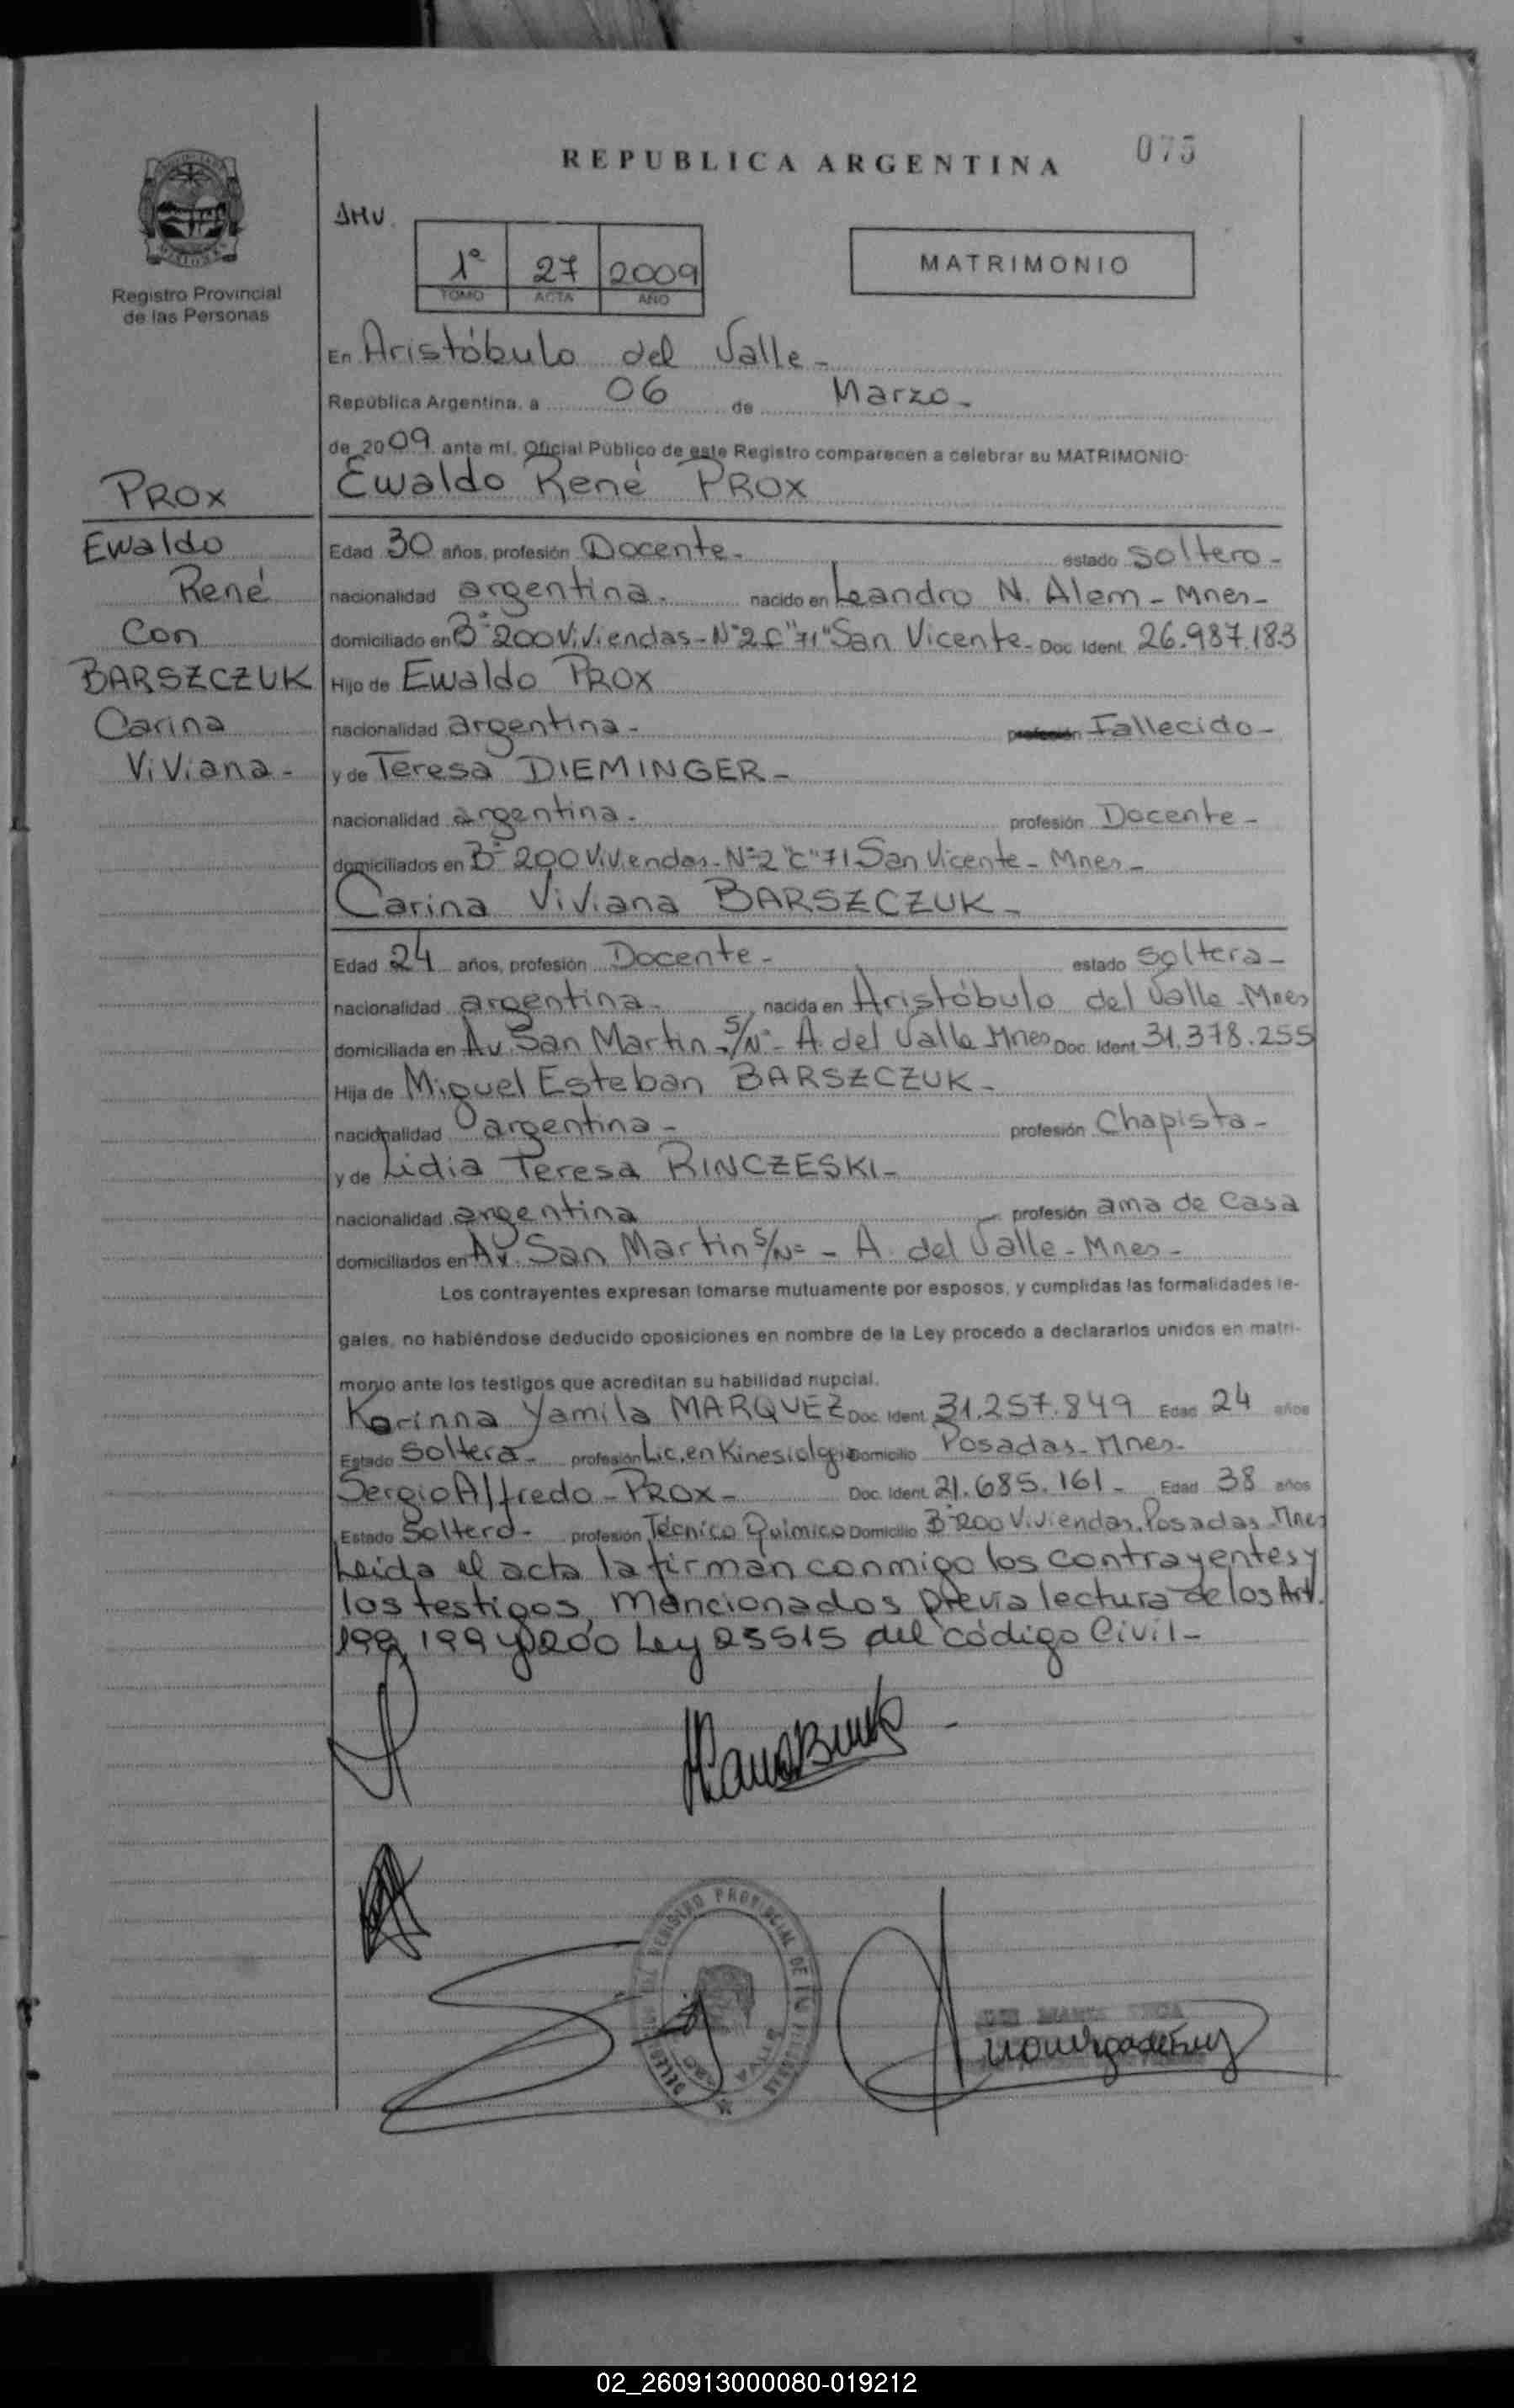 REPUBLICA ARGENTINA
075
Registro Provincial
de las Personas
1º 27 2009
TOMO ACTA AÑO
MATRIMONIO
En Aristóbulo del Valle-
República Argentina, a 06 de Marzo-
de 2009 ante mí, Oficial Público de este Registro comparecen a celebrar su MATRIMONIO:
PROX
Ewaldo René PROX
Ewaldo
René
Con
BARSZCZUK
Carina
Viviana-
Edad 30 años, profesión Docente- estado soltero-
nacionalidad argentina. nacido en Leandro N. Alem - Mnes-
domiciliado en Bº 200 Viviendas - Nº2 C"71" San Vicente- Doc. Ident. 26.987.183
Hijo de Ewaldo PROX
nacionalidad argentina- profesión Fallecido-
y de Teresa DIEMINGER-
nacionalidad argentina. profesión Docente-
domiciliados en Bº 200 Viviendas - Nº2 "C" 71 San Vicente - Mnes-
Carina Viviana BARSZCZUK-
Edad 24 años, profesión Docente- estado soltera-
nacionalidad argentina. nacida en Aristóbulo del Valle - Mnes
domiciliada en Av. San Martin S/Nº - A. del Valle Mnes Doc. Ident. 31.378.255
Hija de Miguel Esteban BARSZCZUK-
nacionalidad argentina- profesión Chapista-
y de Lidia Teresa RINCZESKI-
nacionalidad argentina profesión ama de Casa
domiciliados en Av. San Martin S/Nº - A. del Valle - Mnes-
Los contrayentes expresan tomarse mutuamente por esposos, y cumplidas las formalidades le-
gales, no habiéndose deducido oposiciones en nombre de la Ley procedo a declararlos unidos en matri-
monio ante los testigos que acreditan su habilidad nupcial.
Karinna Yamila MARQUEZ Doc. Ident. 31.257.849 Edad 24 años
Estado Soltera- profesión Lic. en Kinesiolgia Domicilio Posadas - Mnes-
Sergio Alfredo - PROX- Doc. Ident. 21.685.161- Edad 38 años
Estado Soltero- profesión Técnico Químico Domicilio Bº 200 Viviendas, Posadas Mnes
Leida el acta la firman conmigo los contrayentes y
los testigos, mencionados previa lectura de los Art.
198, 199 y 200 Ley 23515 del código Civil-
REGISTRO PROVINCIAL DE LAS PERSONAS
02_260913000080-019212